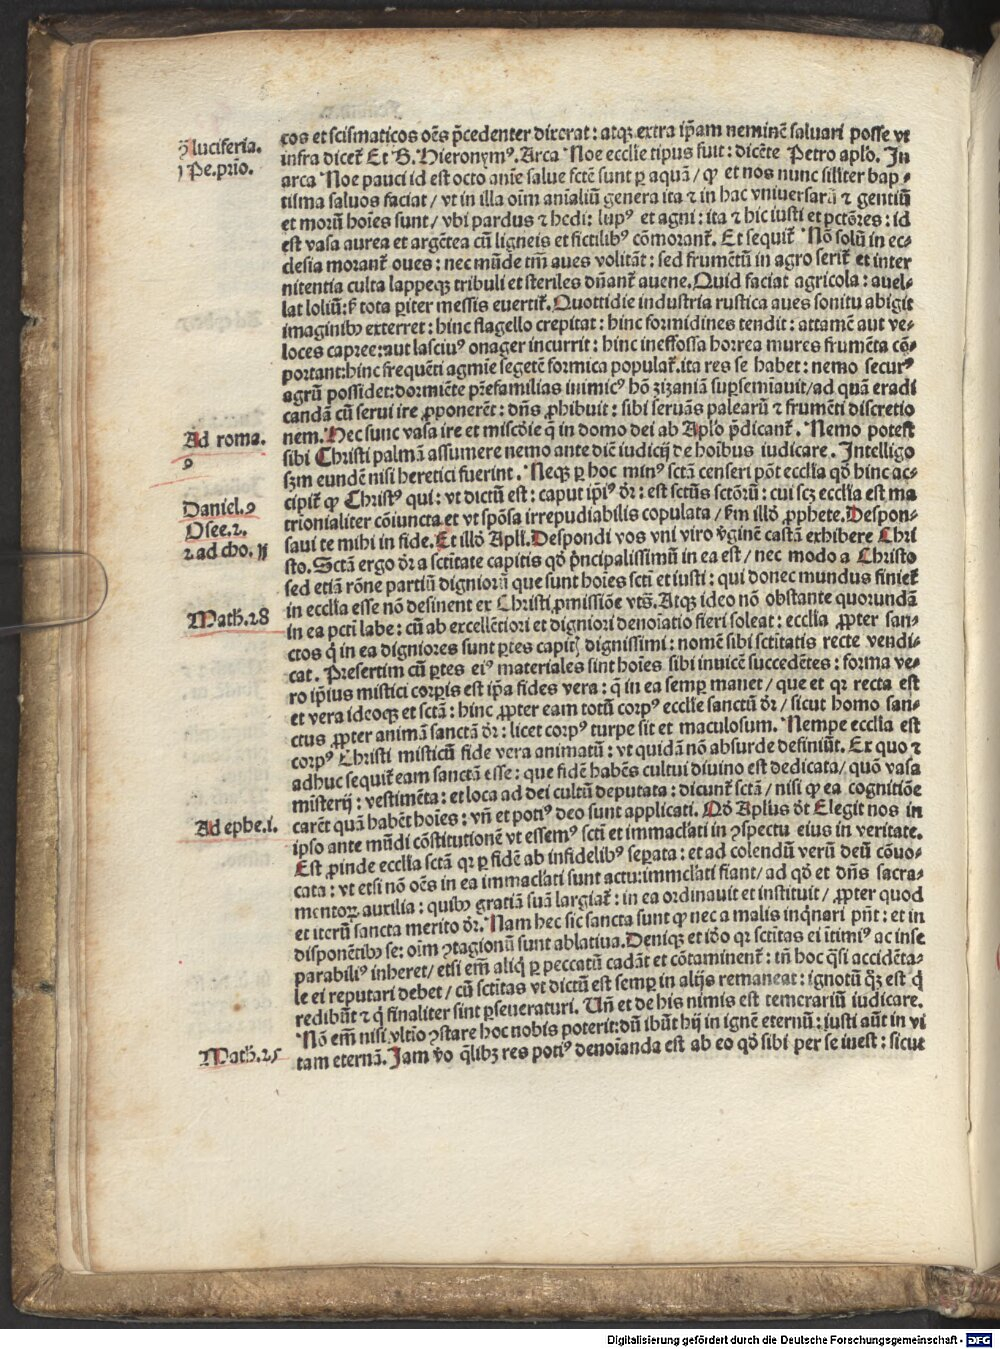 ꝯͣ luciferia.
1 Pe. prīo.
cos et scismaticos oēs p̄cedenter dixerat: atqꝫ extra ip̄am neminē saluari posse vt
infra dicet᷑ Et B. Hieronymꝰ. Arca Noe ecclīe tipus fuit: dicēte Petro apl̓o. In
arca Noe pauci id est octo anīe salue fctē sunt ꝑ aquā / ꝙ et nos nunc siliter bap⸗
tisma saluos faciat / vt in illa oīm aīaliū genera ita ⁊ in hac vniuersarū ⁊ gentiū
et morū hoīes sunt / vbi pardus ⁊ hedi: lupꝰ et agni: ita ⁊ hic iusti et pctōres: id
est vasa aurea et argētea cū ligneis et fictilibꝰ cōmorant᷑. Et sequit᷑ Nō solū in ec⸗
clesia morant᷑ oues: nec mūde tm̄ aues volitāt: sed frumētū in agro serit᷑ et inter
nitentia culta lappeqꝫ tribuli et steriles dn̄ant᷑ auene. Quid faciat agricola: auel⸗
lat loliū: sꝫ tota ꝑiter messis euertit᷑. Quottidie industria rustica aues sonitu abigit
imaginibꝰ exterret: hinc flagello crepitat: hinc formidines tendit: attamē aut ve⸗
loces capree: aut lasciuꝰ onager incurrit: hinc ineffossa horrea mures frumēta cō⸗
portant: hinc frequēti agmīe segetē formica populat᷑. ita res se habet: nemo securꝰ
agrū possidet: dormiēte pr̄efamilias inimicꝰ hō zizaniā suꝑsemīauit / ad quā eradi
candā cū serui ire ꝓponerēt: dn̄s ꝓhibuit: sibi seruās palearū ⁊ frumēti discretio
nem. Hec sunc vasa ire et miscd̓ie q̄ in domo dei ab Apl̓o p̄dicant᷑. Nemo potest
Ad roma.
9
sibi Christi palmā assumere nemo ante diē iudicij de hoībus iudicare. Intelligo
sꝫm eundē nisi heretici fuerint. Neqꝫ ꝑ hoc minꝰ sctā censeri pōt eccl̓ia qd̓ hinc ac⸗
cipit᷑ ꝙ Christꝰ qui: vt dictū est: caput ip̄iꝰ dr̄: est sctūs sctōrū: cui scꝫ eccl̓ia est ma
Daniel. 9
trionialiter cōiuncta et vt spōsa irrepudiabilis copulata / sꝫm illd̓ ꝓphete. Despon⸗
Osee. 2.
saui te mihi in fide. Et illd̓ Apl̓i. Despondi vos vni viro v̓ginē castā exhibere Chri
2 ad cho. 11
sto. Sctā ergo dr̄ a sctītate capitis qd̓ p̓ncipalissimū in ea est / nec modo a Christo
sed etiā rōne partiū digniorū que sunt hoīes scti et iusti: qui donec mundus finiet᷑
in eccl̓ia esse nō desinent ex Christi ꝓmissiōe vts̄. Atqꝫ ideo nō obstante quorundā
Math. 28
in ea pcti labe: cū ab excellētiori et digniori denoīatio fieri soleat: eccl̓ia ꝓpter san⸗
ctos q̓ in ea digniores sunt ꝑtes capitꝭ dignissimi: nomē sibi sctītatis recte vendi⸗
cat. Presertim cū ꝑtes eiꝰ materiales sint hoīes sibi inuicē succedētes: forma ve⸗
ro ip̄ius mistici corꝑis est ip̄a fides vera: q̄ in ea semꝑ manet / que et qꝛ recta est
et vera ideoqꝫ et sctā: hinc ꝓpter eam totū corpꝰ ecclīe sanctū dr̄ / sicut homo san⸗
ctus ꝓpter animā sanctā dr̄: licet corpꝰ turpe sit et maculosum. Nempe eccl̓ia est
corpꝰ Christi misticū fide vera animatū: vt quidā nō absurde definiūt. Ex quo ⁊
adhuc sequit᷑ eam sanctā esse: que fidē habēs cultui diuino est dedicata / quō vasa
misterij: vestimēta: et loca ad dei cultū deputata: dicunt᷑ sctā / nisi ꝙ ea cognitiōe
carēt quā habēt hoīes: vn̄ et potiꝰ deo sunt applicati. Qd̓ Apl̓us dt̄ Elegit nos in
Ad ephe. i.
ipso ante mūdi cōstitutionē vt essemꝰ scti et immacl̓ati in ꝯspectu eius in veritate.
Est ꝓinde eccl̓ia sctā qꝛ ꝑ fidē ab infidelibꝰ seꝑata: et ad colendū verū deū cōuo⸗
cata: vt etsi nō oēs in ea immacl̓ati sunt actu: immcl̓ati fiant / ad qd̓ et dn̄s sacra⸗
mentoꝝ auxilia: quibꝰ gratiā suā largiat᷑: in ea ordinauit et instituit / ꝓpter quod
et iterū sancta merito dr̄. Nam hec sic sancta sunt ꝙ nec a malis inq̓nari pn̄t: et in
disponētibꝰ se: oīm ꝯtagionū sunt ablatiua. Deniqꝫ et id̓o qꝛ sctītas ei ītimiꝰ ac inse
parabiliꝰ inheret / etsi em̄ aliq̓ ꝑ peccatū cadāt et cōtaminent᷑: tn̄ hoc q̄si accidēta⸗
le ei reputari debet / cū sctītas vt dictū est semꝑ in alijs remaneat: ignotū qꝫ est q̓
redibūt ⁊ q̓ finaliter sint ꝑseueraturi. Un̄ et de his nimis est temerariū iudicare.
Nō em̄ nisi vltīo ꝯstare hoc nobis poterit: dū ibūt hij in ignē eternū: iusti aūt in vi
Math. 25
tam eternā. Jam v̓o q̄libꝫ res potiꝰ denoīanda est ab eo qd̓ sibi per se inest: sicut
Digitalisierung gefördert durch die Deutsche Forschungsgemeinschaft - DFG